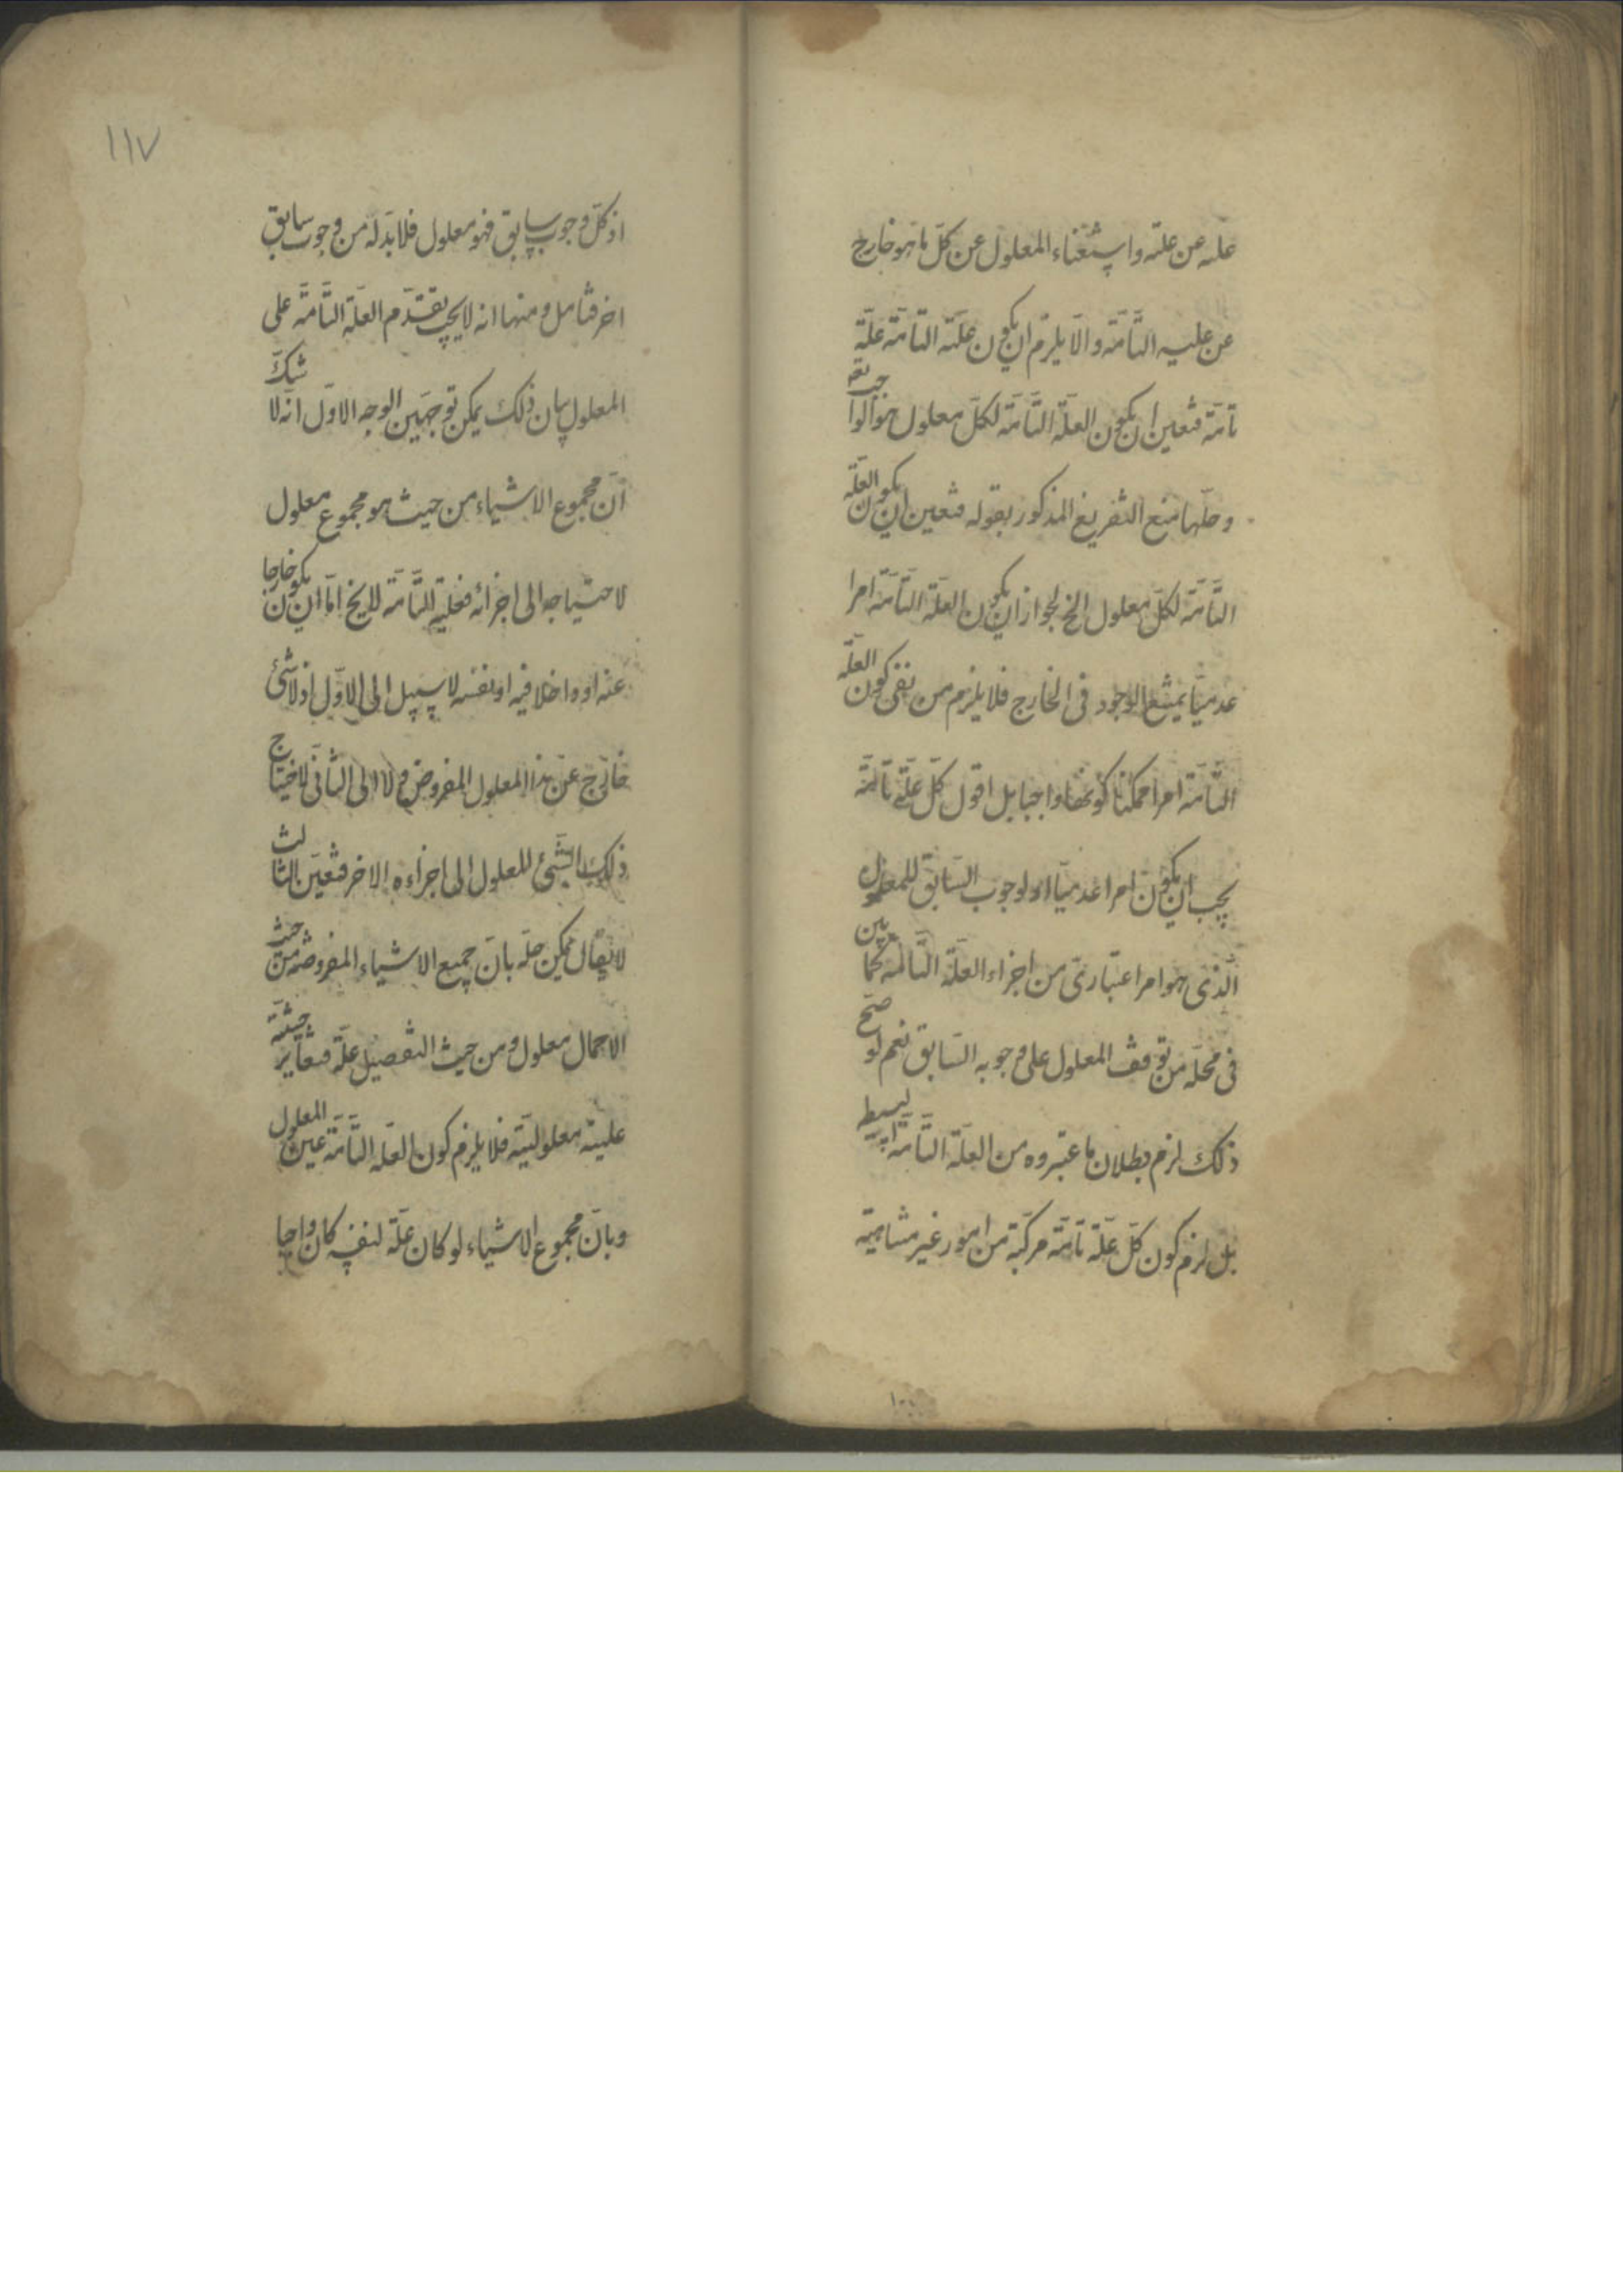 علة عن علته واستغناء المعلول عن كلّ ما هو خارج
عن علته التّامّة والّا يلزم ان يكون علّته التامّة علّة
تامّة فتعين ان يكون العلّة التّامّة لكلّ معلول هو الواجب تعه
وحلّها منع التفريع المذكور بقوله فتعين ان يكون العلّة
التّامّة لكلّ معلول الخ لجواز ان يكون العلّة التّامّة امرا
عدميّا يمتنع الوجود فى الخارج فلا يلزم من نفى كون العلّة
التّامّة امرا ممكنا كونها واجبا بل اقول كلّ علّة تامّة
يجب ان يكون امرا عدميّا اذ لوجوب السّابق للمعلول
الّذى هو امر اعتبارىّ من اجزاء العلّة التّامّة كما بين
فى محلّه من توقف المعلول على وجوبه السّابق نعم لو صحّ
ذلك لزم بطلان ما اعتبروه من العلّة التّامّة البسيط
بل لزم كون كلّ علّة تامّة مركّبة من امور غير متناهية
١١٧
اذ كلّ وجوب سابق فهو معلول فلا بدّ له من وجوب سابق
اخر فتامل ومنها انه لا يجب تقدّم العلّة التّامّة على
المعلول بيان ذلك يمكن توجهين الوجه الاوّل انّه لا شكّ
انّ مجموع الاشياء من حيث هو مجموع معلول
لاحتياجه الى اجزائه فعلته التّامّة لا يخ امّا ان يكون خارجا
عنه او داخلا فيه او نفسه لا سبيل الى الاوّل اذ لا شئ
خارج عن هذا المعلول المفروض ولا الى الثّانى لاحتياج
ذلك الشّئ المعلول الى اجزاءه الاخر فتعيّن الثالث
لا يقال يمكن حلّه بانّ جميع الاشياء المفروضة من حيث
الاجمال معلول ومن حيث التفصيل علّة فتغاير حيثيّة
عليته معلوليّته فلا يلزم كون العلّة التّامّة عين المعلول
وبانّ مجموع الاشياء لو كان علّة لنفسه كان واجبا